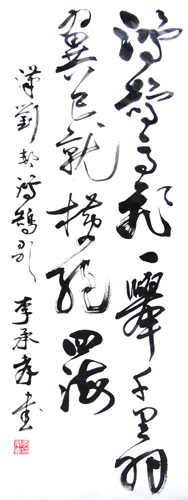 鴻鵠高飛一舉千里羽
翼已就橫絕四海
漢劉邦鴻鵠歌 李承孝書